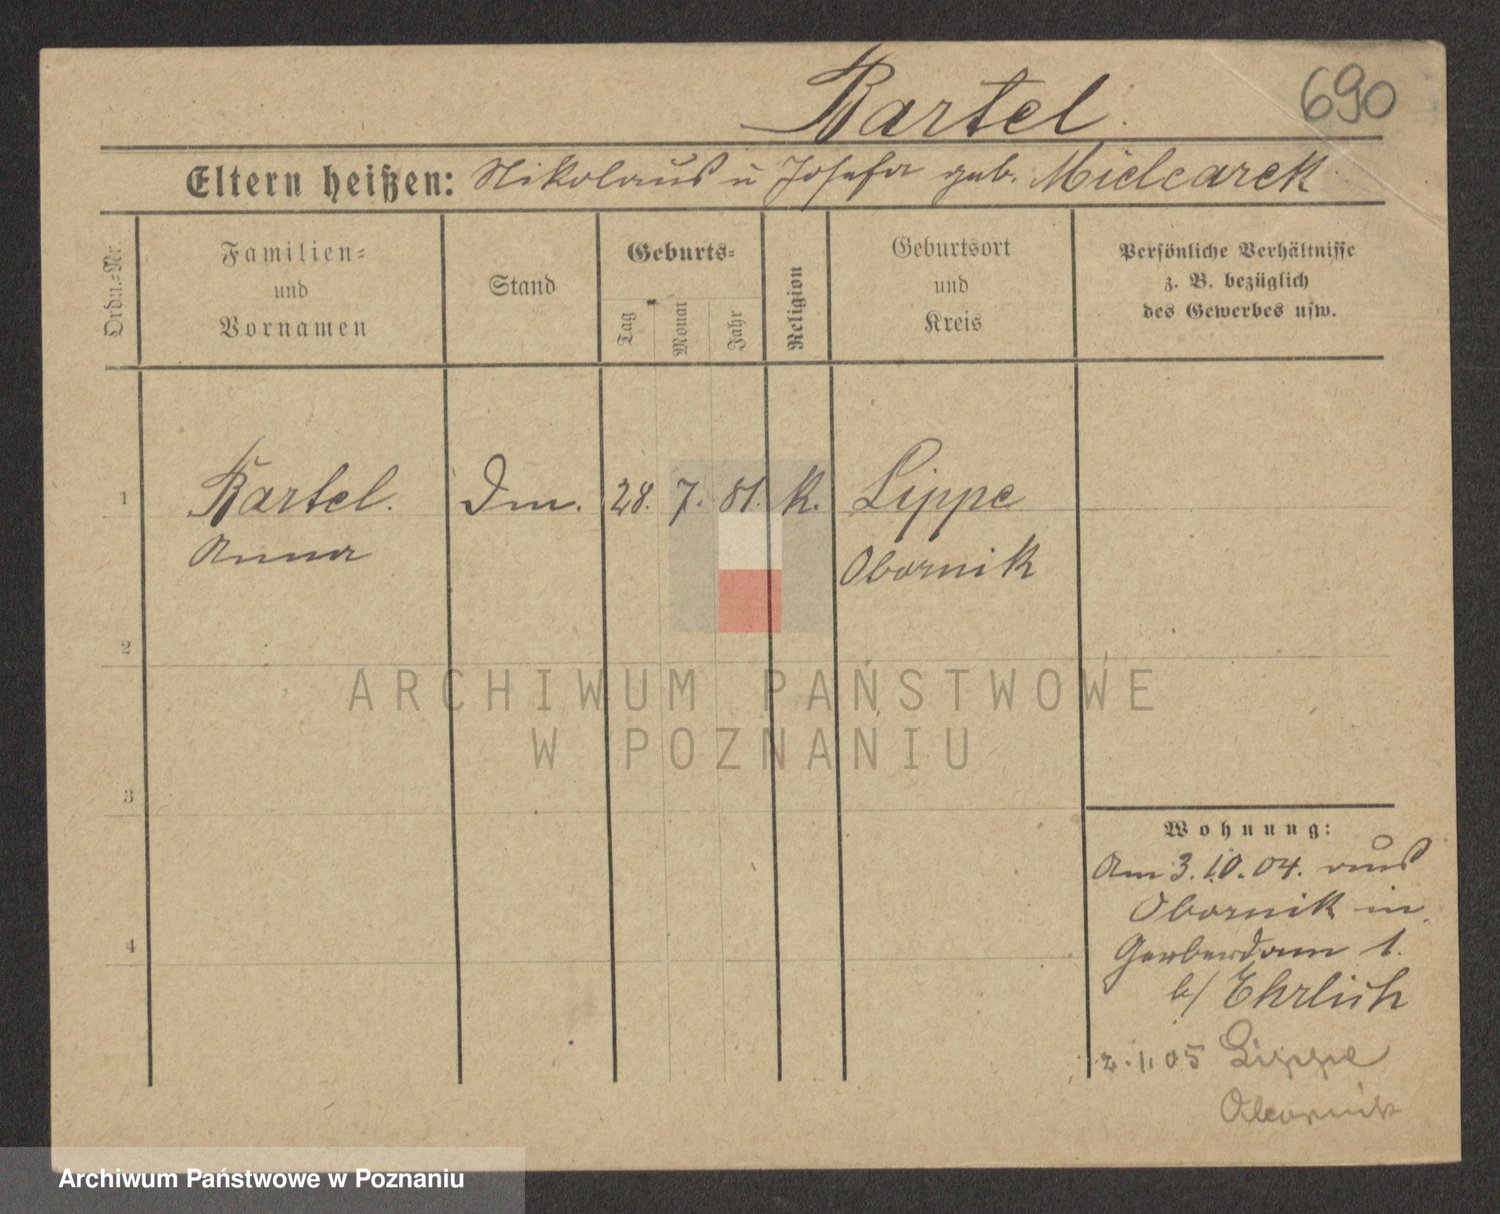 Bartel.
690
Eltern heißen: Nikolaus u Josefa geb. Mielcarek
Ordn.=Nr.
Familien=
und
Vornamen
Stand
Geburts=
Tag
Monat
Jahr
Religion
Geburtsort
und
Kreis
Persönliche Verhältnisse
z. B. bezüglich
des Gewerbes usw.
1 Bartel. Dm. 28. 7. 81. K. Lippe
Anna Obornik
2
3
4
Wohnung:
Am 3.10.04. aus
Obornik in
Gerberdam 1.
b/ Ehrlich
2.1.05 Lippe
Obornik
ARCHIWUM PAŃSTWOWE
W POZNANIU
Archiwum Państwowe w Poznaniu